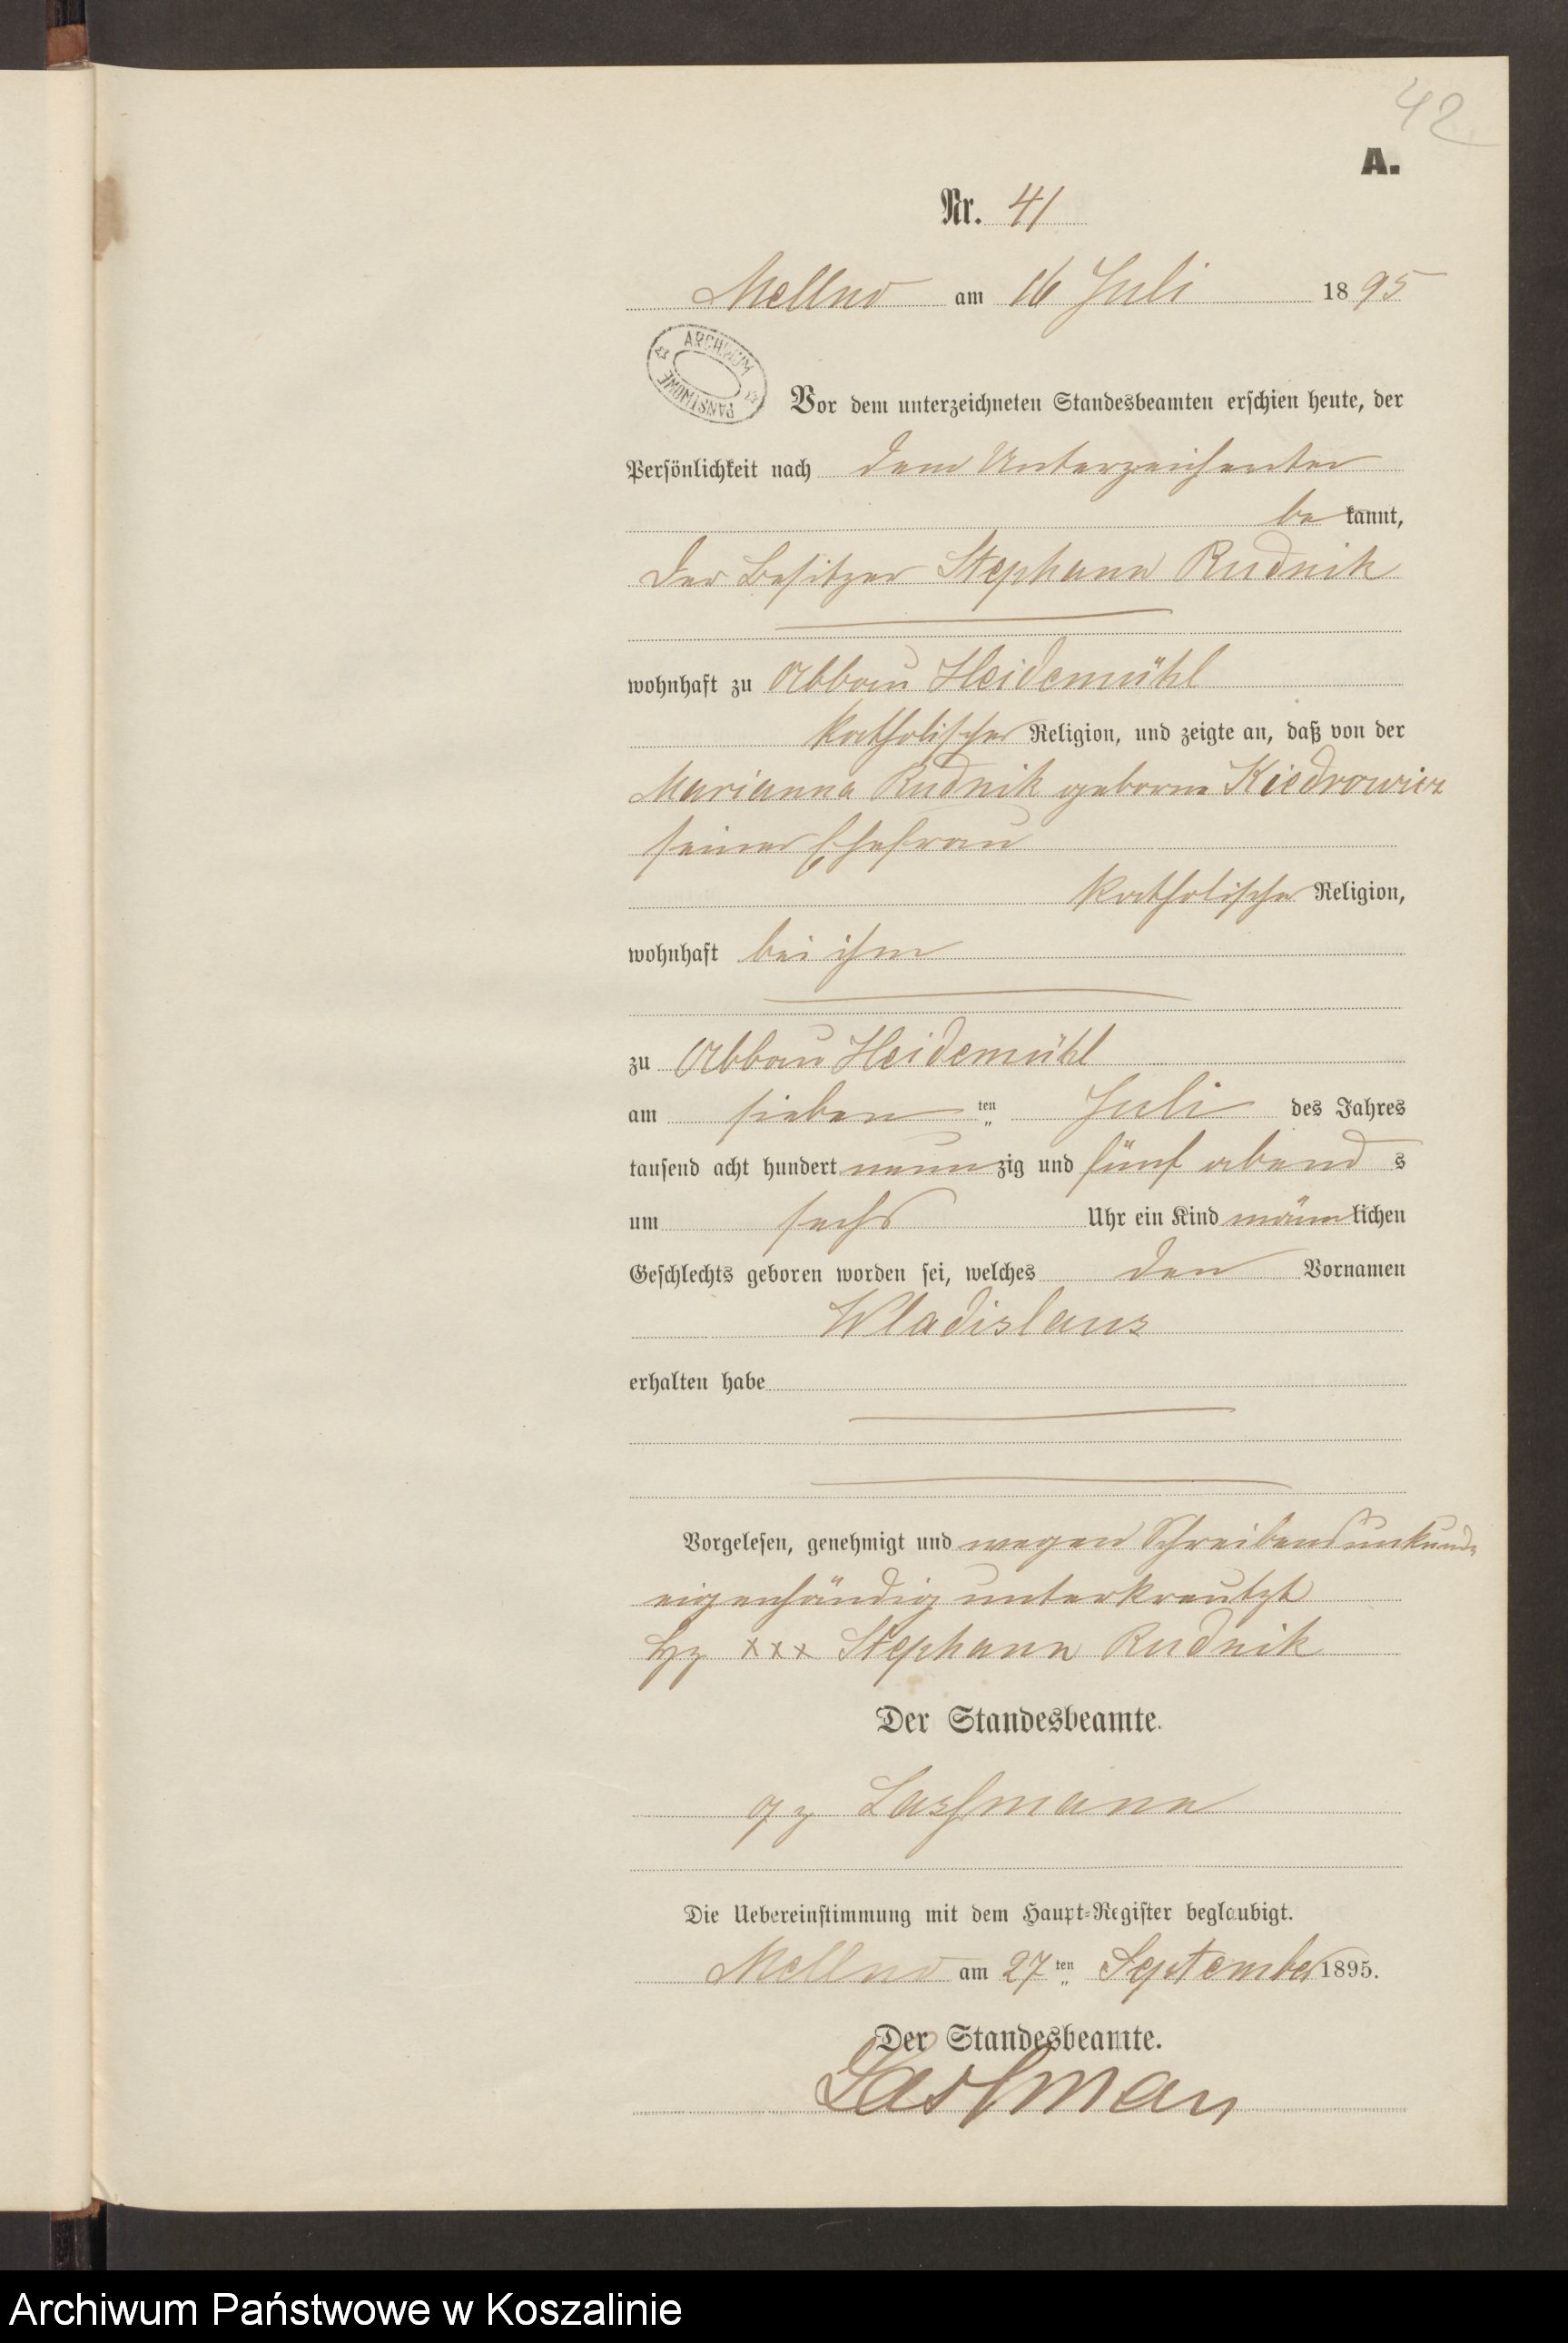 42
A.
Nr. 41
Mellno am 16 Juli 1895
ARCHIWUM PAŃSTWOWE
Vor dem unterzeichneten Standesbeamten erschien heute, der
Persönlichkeit nach dem Unterzeichneten
be kannt,
der Besitzer Stephann Rudnik
wohnhaft zu Abbau Heidemühl
katholischer Religion, und zeigte an, daß von der
Marianna Rudnik geborne Kiedrowicz
seiner Ehefrau
katholischer Religion,
wohnhaft bei ihm
zu Abbau Heidemühl
am sieben ten Juli des Jahres
tausend acht hundert neunzig und fünf abend s
um sechs Uhr ein Kind männlichen
Geschlechts geboren worden sei, welches den Vornamen
Wladislaus
erhalten habe
Vorgelesen, genehmigt und wegen Schreibensunkunde
eigenhändig unterkreutzt
Hz xxx Stephann Rudnik
Der Standesbeamte.
gz Lassmann
Die Uebereinstimmung mit dem Haupt-Register beglaubigt.
Mellno am 27ten September 1895.
Der Standesbeamte.
Archiwum Państwowe w Koszalinie